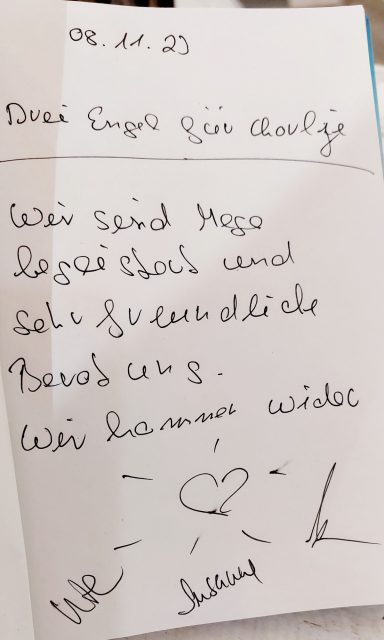 08.11.23
Drei Engel für Charlie
Wir sind Mega
begeistert und
sehr freundliche
Beratung.
Wir kommen wider
Ute
Susanne